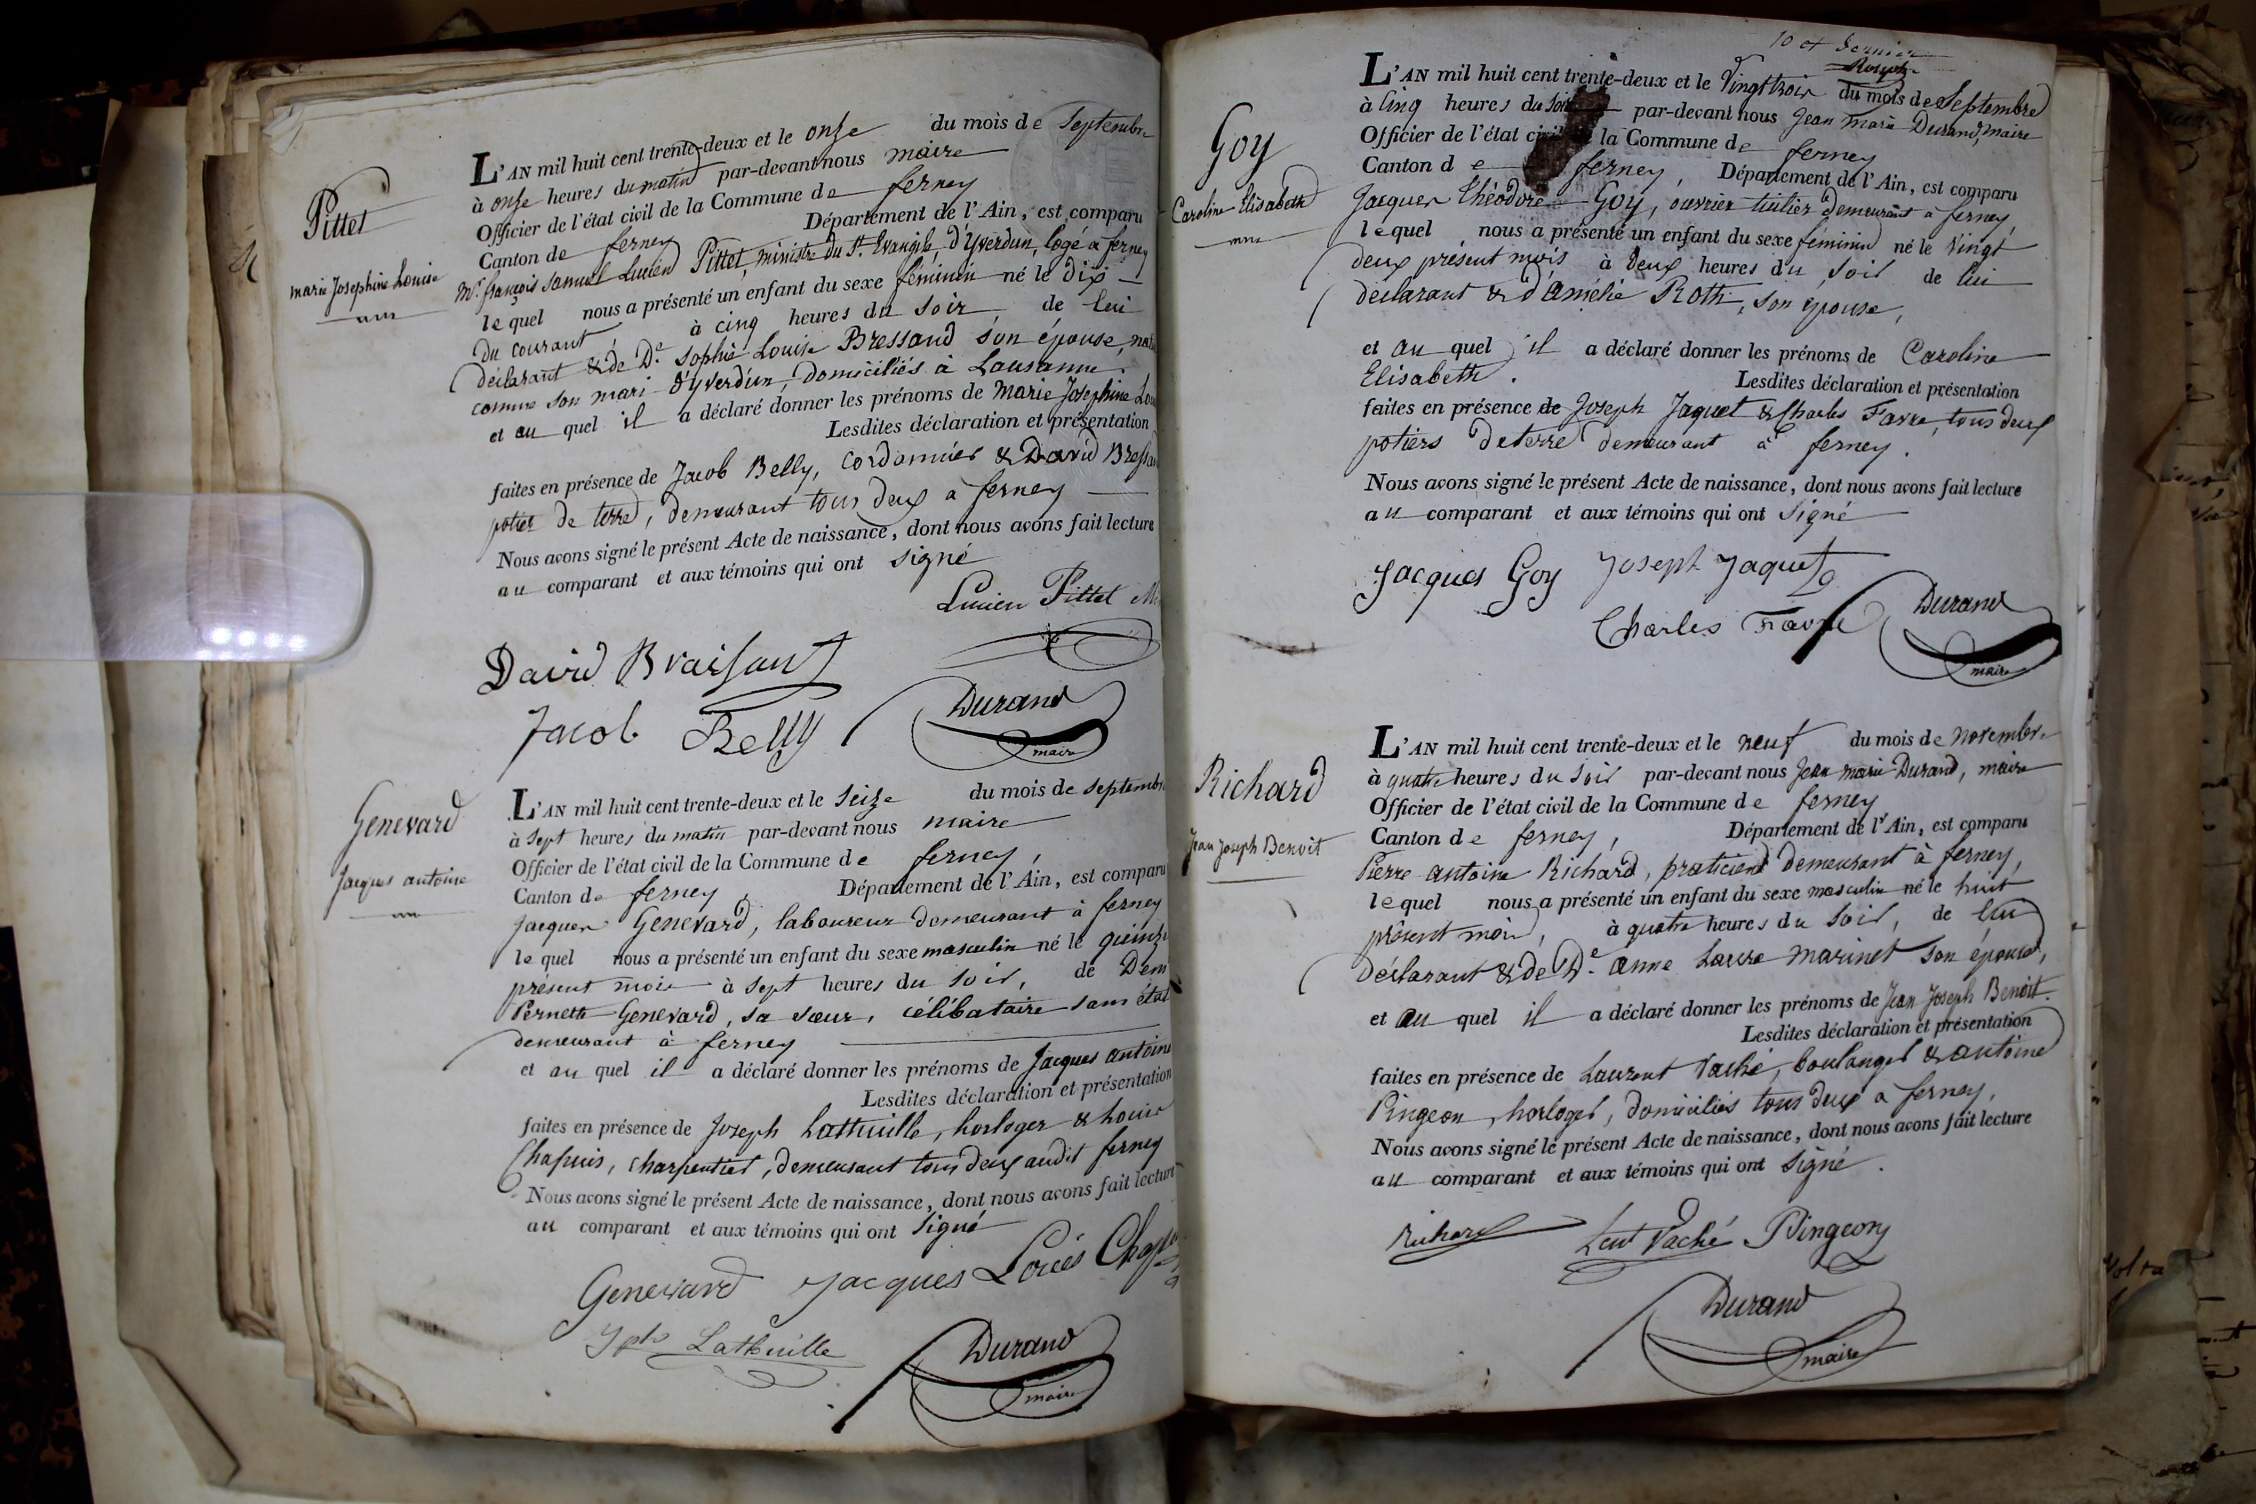 Pittet
marie Josephine Louise
L'AN mil huit cent trente-deux et le onze du mois de Septembre
à onze heures du matin par-devant nous maire
Officier de l'état civil de la Commune de ferney
Canton de ferney Département de l'Ain, est comparu
Mr. françois Samuel Lucien Pittet, ministre du St. Evangile, d'Yverdun, logé a ferney
lequel nous a présenté un enfant du sexe féminin né le dix
du courant, à cinq heures du soir de lui
déclarant & de De. Sophie Louise Bressand son épouse,
comme son mari d'Yverdun, domiciliés à Lausanne.
et au quel il a déclaré donner les prénoms de Marie Josephine
Lesdites déclaration et présentation
faites en présence de Jacob Belly, cordonnier & David
potier de terre, demeurant tous deux à ferney
Nous avons signé le présent Acte de naissance, dont nous avons fait lecture
au comparant et aux témoins qui ont signé
Lucien Pittet
David Braissant
Jacob Belly
Durand
maire
Genevard
Jacques antoine
L'AN mil huit cent trente-deux et le Seize du mois de septembre
à sept heures du matin par-devant nous maire
Officier de l'état civil de la Commune de ferney,
Canton de ferney Département de l'Ain, est comparu
Jacques Genevard, laboureur demeurant à ferney
lequel nous a présenté un enfant du sexe masculin né le quinze
présent mois à sept heures du soir, de
Pernette Genevard, sa sœur, célibataire sans état
demeurant à ferney
et au quel il a déclaré donner les prénoms de Jacques antoine
Lesdites déclaration et présentation
faites en présence de Joseph Lathuille, horloger & Louis
Chapuis, charpentier, demeurant tous deux audit ferney
Nous avons signé le présent Acte de naissance, dont nous avons fait lecture
au comparant et aux témoins qui ont signé
Genevard Jacques Louis
Jph Lathuille
Durand
maire
10 et dernier
L'AN mil huit cent trente-deux et le Vingt trois du mois de Septembre
à Cinq heures du soir par-devant nous Jean Marie Durand, maire
Officier de l'état civil de la Commune de ferney
Canton de ferney, Département de l'Ain, est comparu
Goy
Caroline Elisabeth
Jacques Théodore Goy, ouvrier tuilier demeurant à ferney,
lequel nous a présenté un enfant du sexe féminin né le vingt
deux présent mois à deux heures du soir de lui
déclarant & d'Amélie Roth, son épouse,
et au quel il a déclaré donner les prénoms de Caroline
Elisabeth. Lesdites déclaration et présentation
faites en présence de Joseph Jaquet & Charles Favre, tous deux
potiers de terre demeurant à ferney.
Nous avons signé le présent Acte de naissance, dont nous avons fait lecture
au comparant et aux témoins qui ont signé
Jacques Goy Joseph Jaquet
Charles Favre Durand
maire
Richard
Jean Joseph Benoit
L'AN mil huit cent trente-deux et le neuf du mois de novembre
à quatre heures du soir par-devant nous Jean marie Durand, maire
Officier de l'état civil de la Commune de ferney
Canton de ferney, Département de l'Ain, est comparu
Pierre antoine Richard, praticien demeurant à ferney,
lequel nous a présenté un enfant du sexe masculin né le huit
présent mois, à quatre heures du soir, de lui
déclarant & de De. anne Laure marinet son épouse,
et au quel il a déclaré donner les prénoms de Jean Joseph Benoit.
Lesdites déclaration et présentation
faites en présence de Laurent Vaché, boulanger & antoine
Pingeon, horloger, domiciliés tous deux a ferney,
Nous avons signé le présent Acte de naissance, dont nous avons fait lecture
au comparant et aux témoins qui ont signé.
Richard Lent Vaché Pingeon
Durand
maire